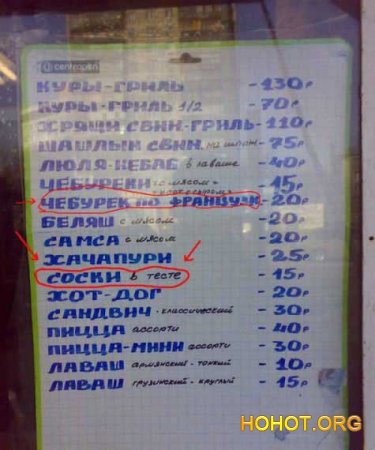 centropen
КУРЫ-ГРИЛЬ -130р
КУРЫ-ГРИЛЬ 1/2 -70р
ХРЯЩИ СВИН-ГРИЛЬ-110р
ШАШЛЫК СВИН. на шпаж -75р
ЛЮЛЯ-КЕБАБ в лаваше -40р
ЧЕБУРЕКИ с мясом -15р
ЧЕБУРЕК ПО ФРАНЦУЗК -20р
БЕЛЯШ с мясом -20р
САМСА с мясом -20р
ХАЧАПУРИ -25р
СОСКИ в тесте -15р
ХОТ-ДОГ -20р
САНДВИЧ -классический -30р
ПИЦЦА ассорти -40р
ПИЦЦА-МИНИ ассорти -30р
ЛАВАШ армянский-тонкий -10р
ЛАВАШ грузинский-круглый -15р
HOHOT.ORG